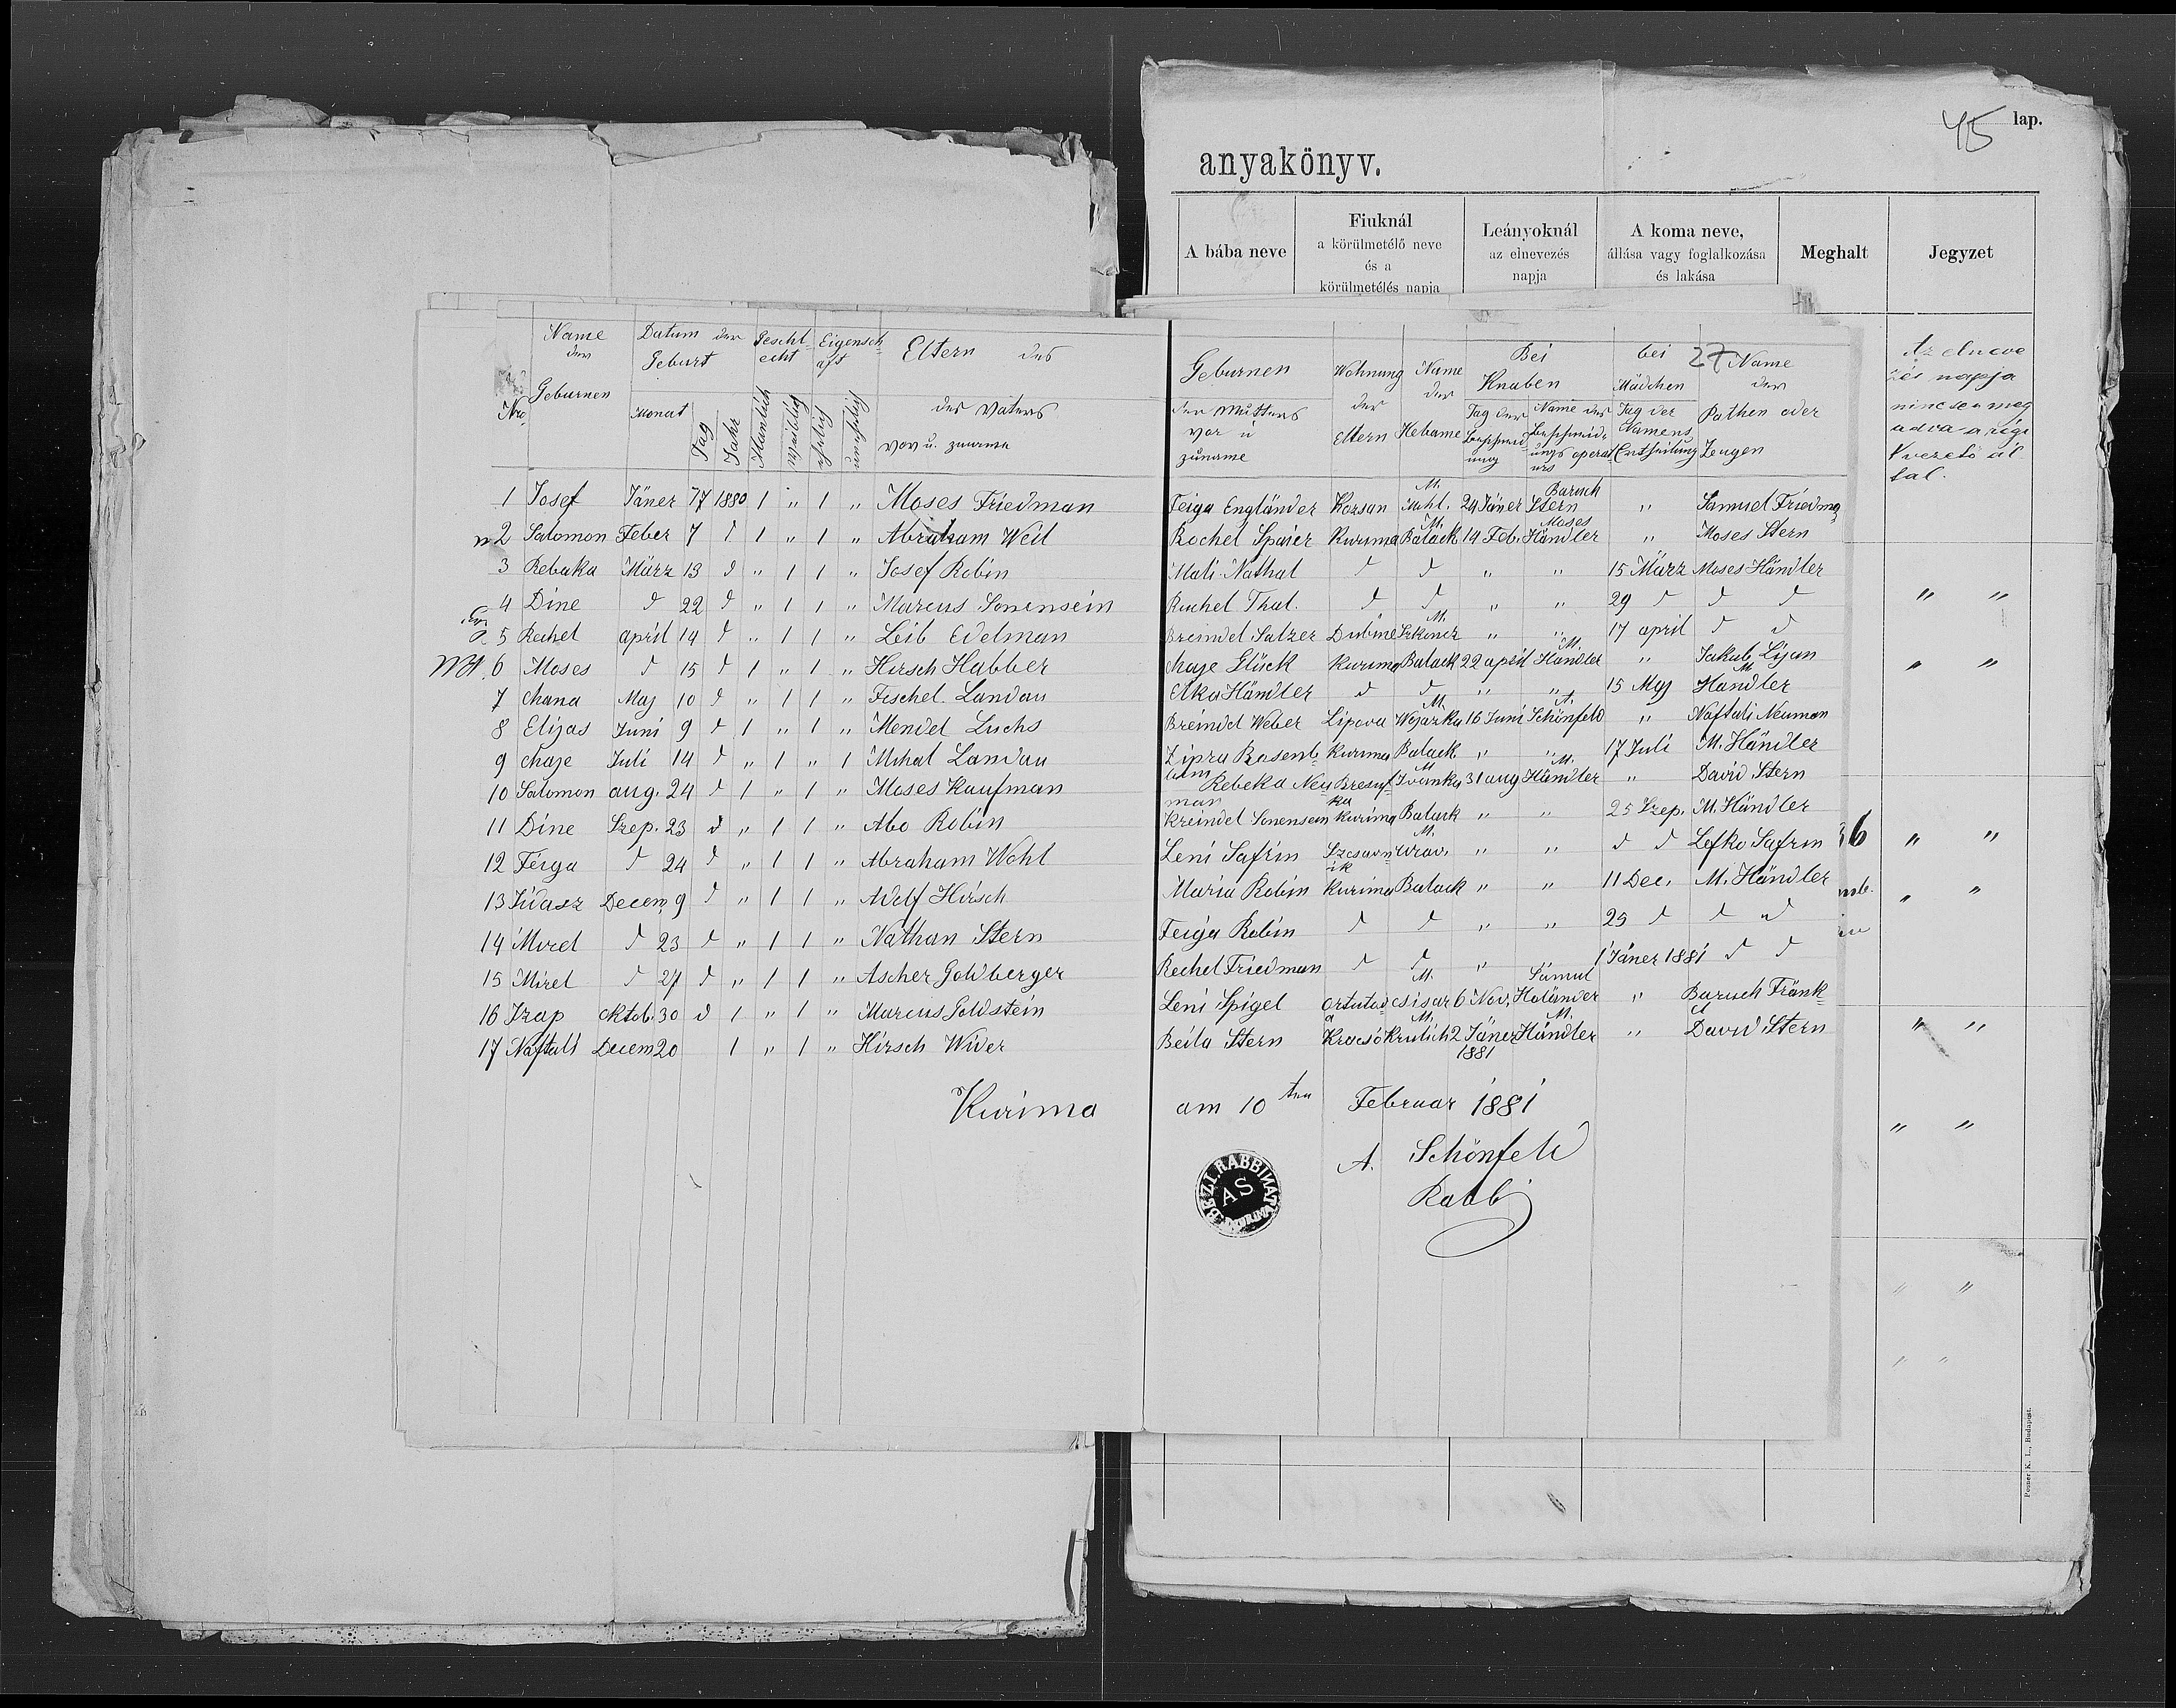 45 lap.
anyakönyv.
A bába neve
Fiuknál
a körülmetélő neve
és a
körülmetélés napja
Leányoknál
az elnevezés
napja
A koma neve,
állása vagy foglalkozása
és lakása
Meghalt
Jegyzet
Az elneve
zés napja
nincsen meg
adva a régi
Kvezető ál
tal.
27
Nro. Name der Geburnen Datum der Geburt Monat Tag Jahr Geschl-echt Mänlich weiblig Eigensch-aft ehelich unehlich Eltern des des Vaters vor u. zuname
Geburnen der Mutters vor ü zuname Wohnung der Eltern Name der Hebame Bei Knaben Tag der Beschneidung Name des Beschneidungs operateurs bei Mädchen Tag der Namens Ertheilung Name der Pathen oder Zeugen
1 Josef Jäner 17 1880 1 " 1 " Moses Friedman Feiga Engländer Kozsan M. Muhl. 24 Jäner Barisch Stern " Samuel Friedma
2 Salomon Feber 7 d 1 " 1 " Abraham Weil Rochel Spaier Kurima M. Balack 14 Feb. Moses Händler " Moses Stern
3 Rebaka März 13 d " 1 1 " Josef Robin Mali Nathal d d " " 15 März Moses Händler
4 Dine d 22 d " 1 1 " Marcus Sonensein Ruchel Thal. d d " " 29 d d d
5 Rechel april 14 d " 1 1 " Leib Edelman Breindel Salzer Dubine M. Szkincz " " 17 april d d
6 Moses d 15 d 1 " 1 " Hirsch Habber Chaje Glück Kurima Balack 22 april M. Händler " Jakub Lijan
7 Chana Maj 10 d " 1 1 " Fischel Landau Elka Händler d d " " 15 Maj M. Handler
8 Elijas Juni 9 d 1 " 1 " Mendel Luchs Breindel Weber Lipova M. Wojarka 16 Juni A. Schönfeld " Naftali Neuman
9 Chaje Juli 14 d " 1 " 1 Mihal Landau Zipra Rosenb- Kurima Balack " " 17 Juli M. Händler
10 Salomon aug. 24 d 1 " 1 " Moses Kaufman Rebeka Neuman Bresufka M. Ivanka 31 aug M. Händler " David Stern
11 Dine Szep. 23 d " 1 1 " Abo Robin Kreindel Sonensein Kurima Balack " " 25 Szep. M. Händler
12 Feiga d 24 d " 1 1 " Abraham Wohl Leni Safrin Szcsavnik M. Wrav. " " d d Lefko Safrin
13 Judasz Decem. 9 d " 1 1 " Adolf Hirsch Maria Robin Kurima Balack " " 11 Dec. M. Händler
14 Mirel d 23 d " 1 1 " Nathan Stern Feiga Robin d d " " 25 d d d
15 Mirel d 27 d " 1 1 " Ascher Goldberger Rechel Friedman d d " 1 Jäner 1881 d d
16 Izap Oktob. 30 d 1 " 1 " Marcus Goldstein Leni Spigel Ortutová M. Csisar 6 Nov. Sämul Holänder " Baruch Fränkel
17 Naftali Decem 20 1 " 1 " Hirsch Wider Beila Stern Kracsó M. Krulich 2 Jäner 1881 M. Händler " David Stern
Kurima am 10ten Februar 1881
A. Schönfeld
Rabbi
BEZI. RABBINAT
AS
KURIMA
Posner K. L., Budapest.